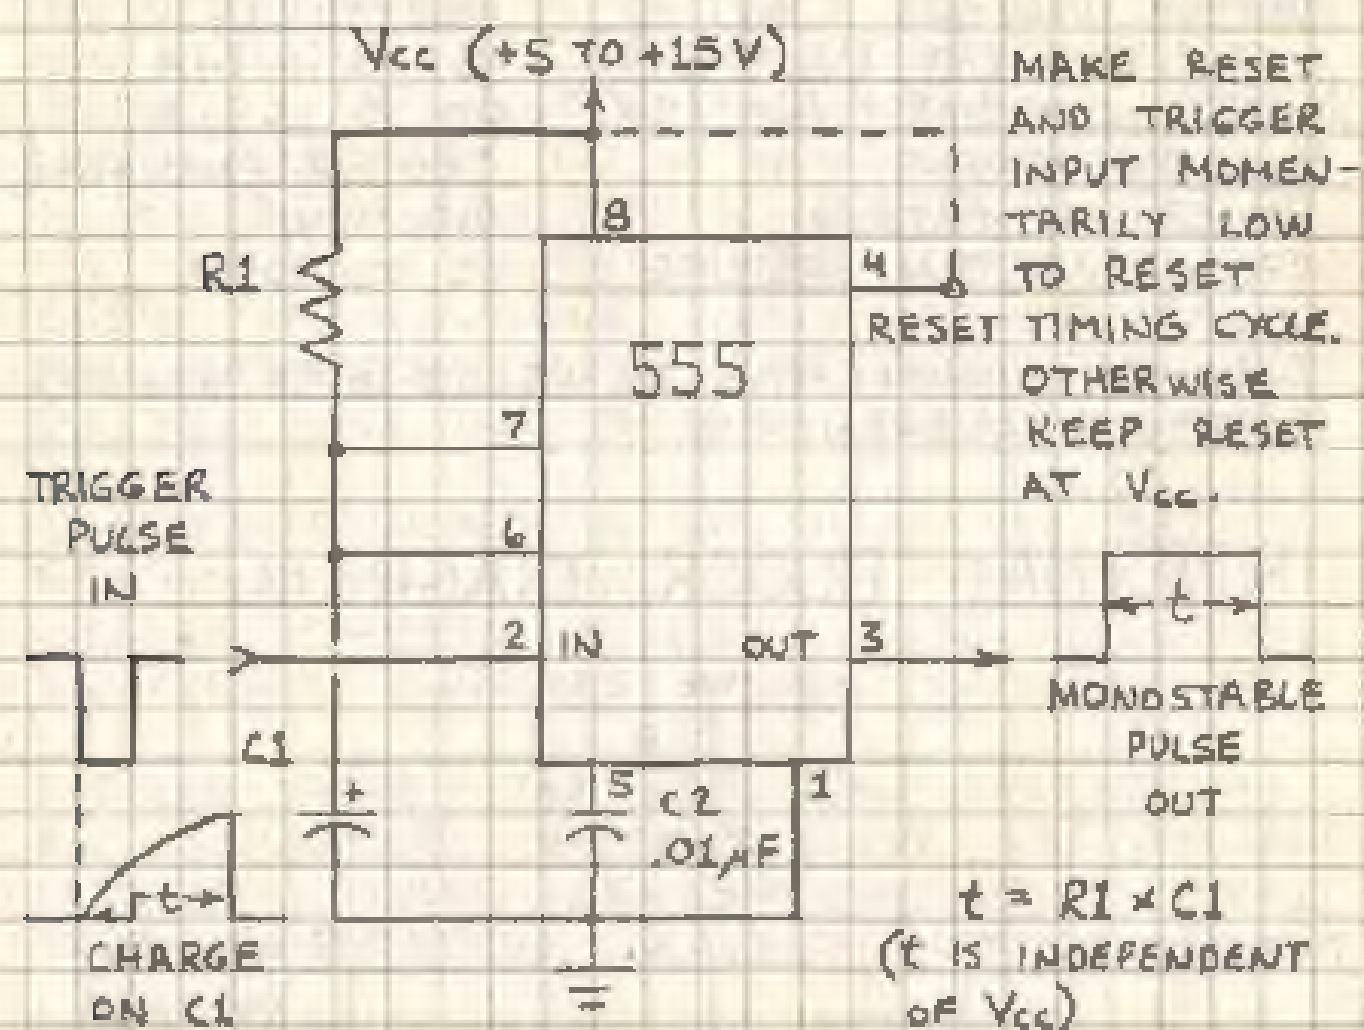 Vcc (+5 TO +15 V)
MAKE RESET
AND TRIGGER
INPUT MOMEN-
TARILY LOW
TO RESET
TIMING CYCLE.
OTHERWISE
KEEP RESET
AT Vcc.
8
4
RESET
R1
555
7
6
TRIGGER
PULSE
IN
2
IN
OUT
3
t
MONOSTABLE
PULSE
OUT
C1
+
5
C2
.01µF
1
t
CHARGE
ON C1
t = R1 × C1
(t IS INDEPENDENT
OF Vcc)